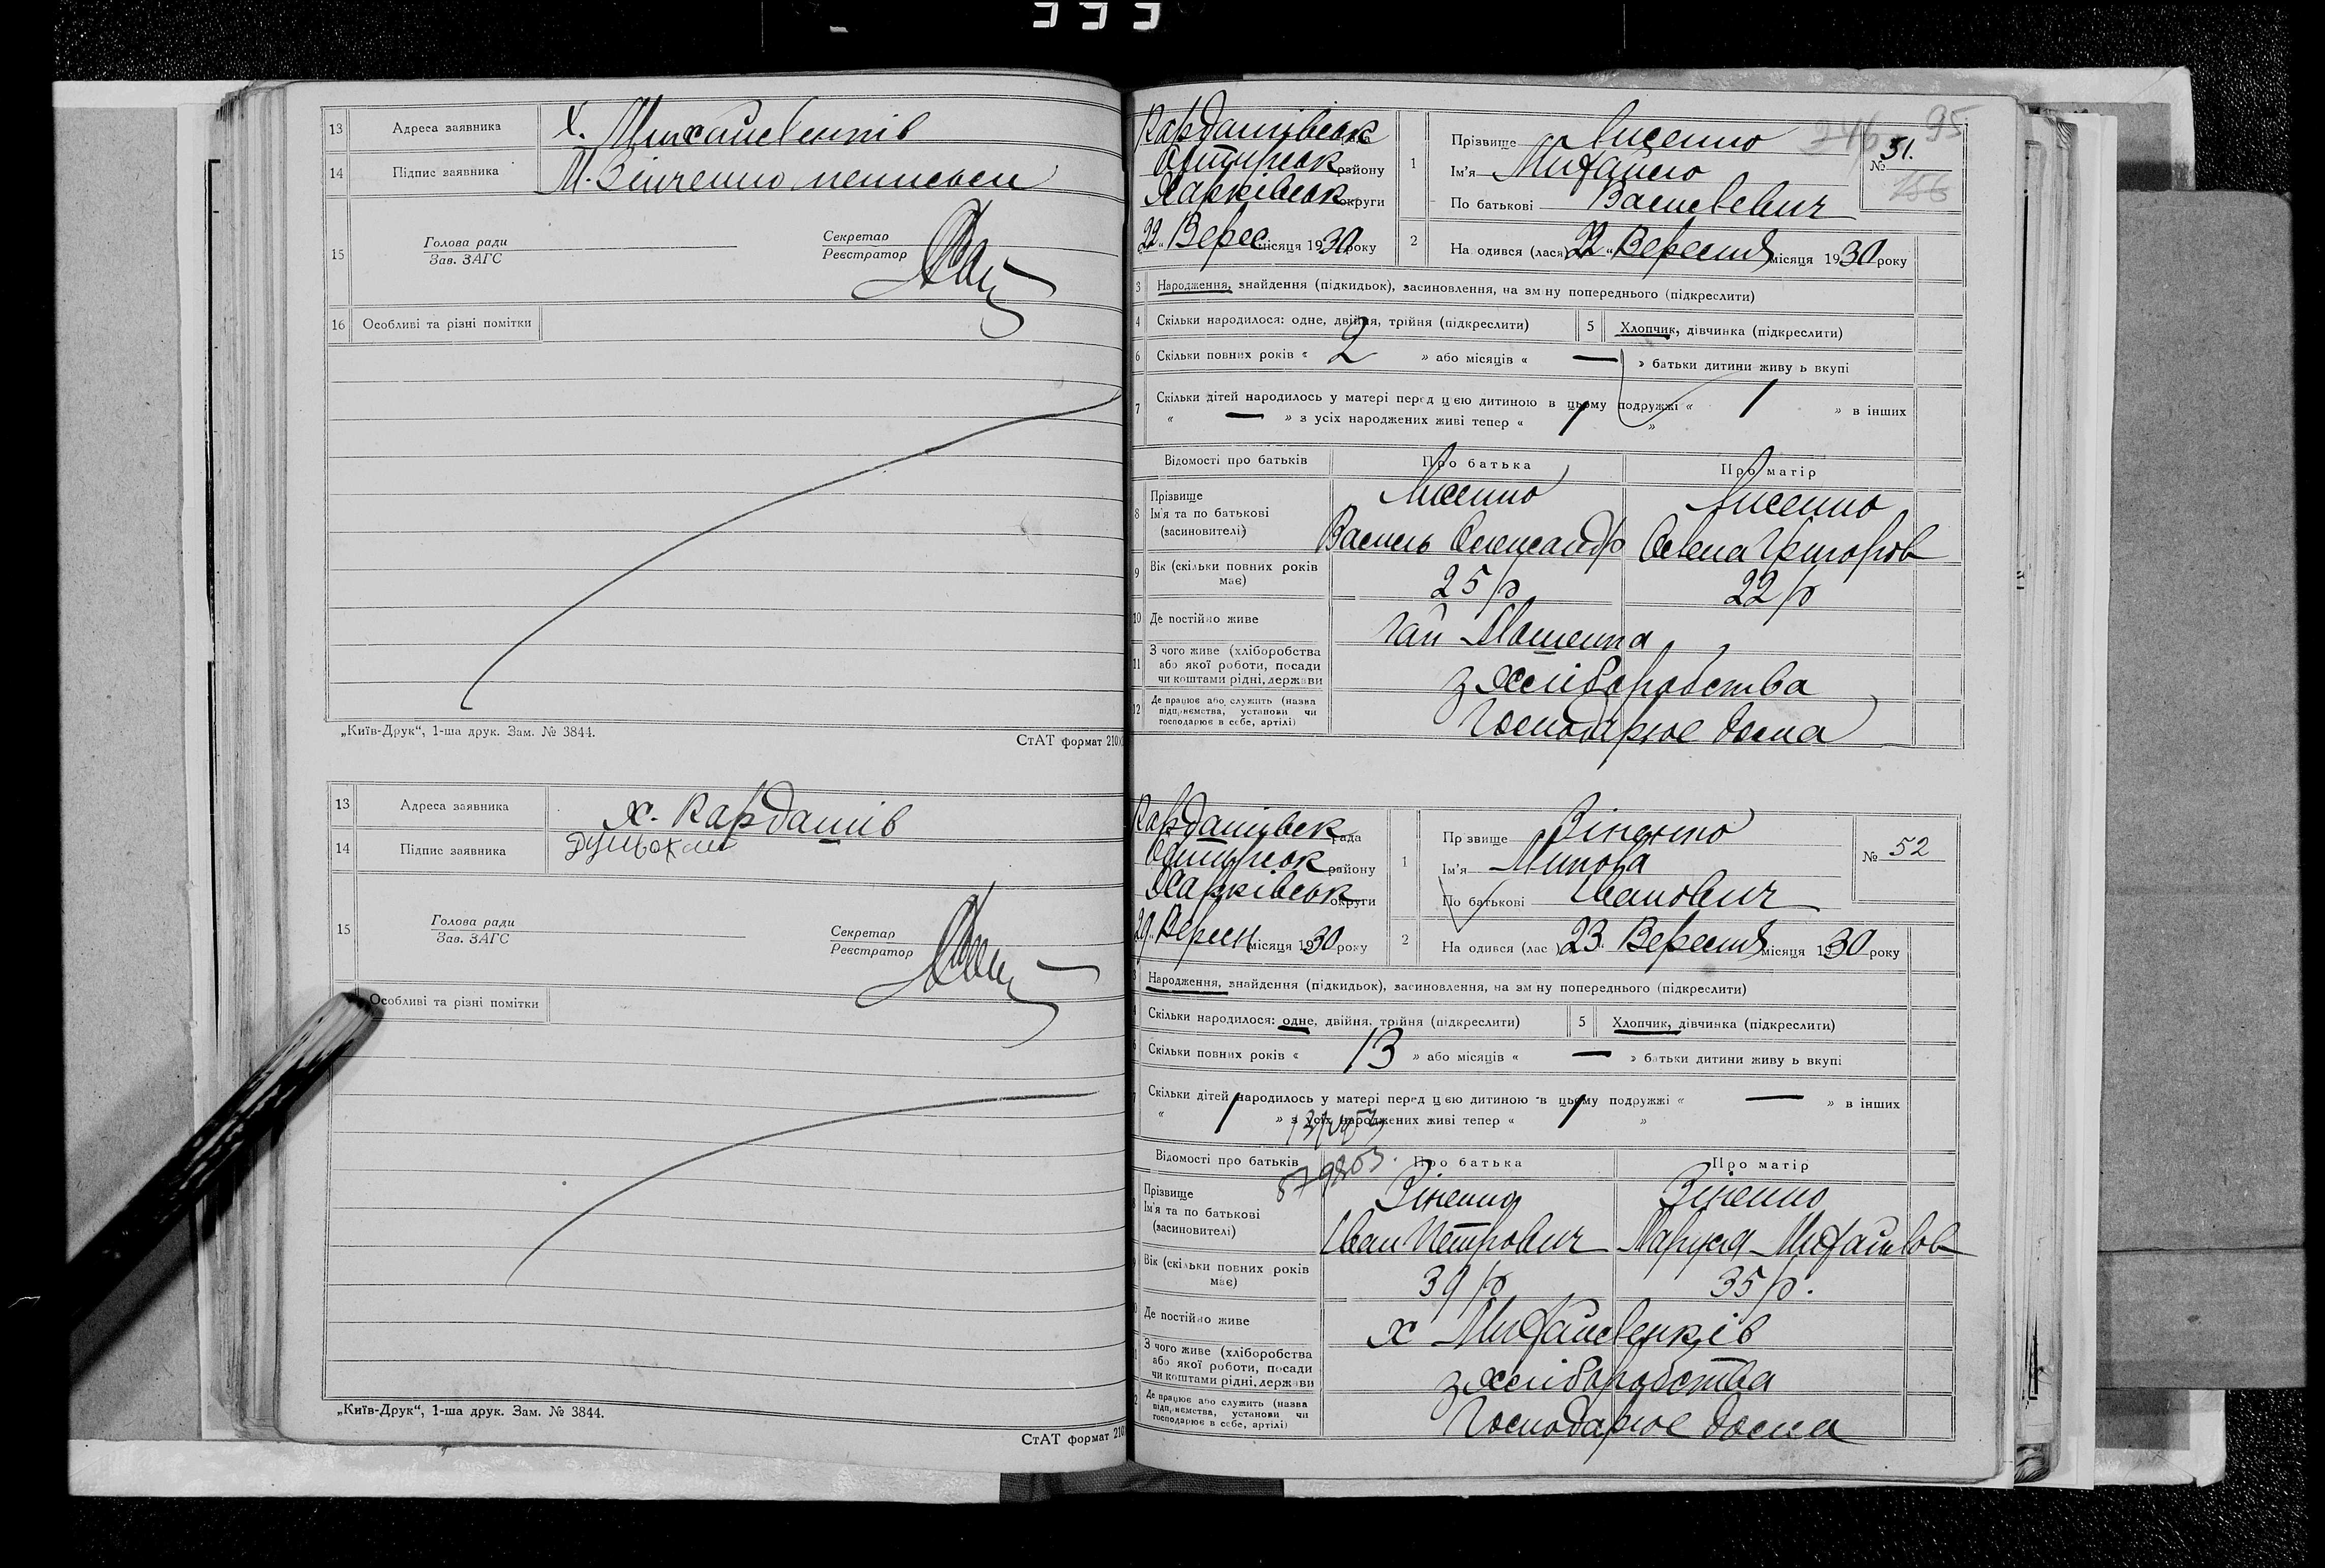 333
13 Адреса заявника Х. Михайленків
14 Підпис заявника М. Зінченко
15 Голова ради
Зав. ЗАГС
Секретар
Реєстратор
16 Особливі та різні помітки
„Київ-Друк“, 1-ша друк. Зам. № 3844.
СтАТ формат 210
13 Адреса заявника х. Кардашів
14 Підпис заявника
15 Голова ради
Зав. ЗАГС
Секретар
Реєстратор
Особливі та різні помітки
„Київ-Друк“, 1-ша друк. Зам. № 3844.
СтАТ формат 210
95
246
Кардашівськ
Охтирськ району
Харківськ округи
22 „ Верес місяця 1930 року
1 Прізвище Лисенко
Ім'я Михайло
По батькові Василевич
№ 51.
156
2 На одився (лася) 22 „ Вересня місяця 1930 року
3 Народження, знайдення (підкидьок), засиновлення, на зміну попереднього (підкреслити)
4 Скільки народилося: одне, двійня, трійня (підкреслити) 5 Хлопчик, дівчинка (підкреслити)
6 Скільки повних років « 2 » або місяців « — » батьки дитини живу ь вкупі
7 Скільки дітей народилось у матері перед цією дитиною в цьому подружжі « 1 » в інших
« — » з усіх народжених живі тепер « 1 »
Відомості про батьків Про батька Про матір
8 Прізвище Лисенко Лисенко
Ім'я та по батькові
(засиновителі) Василь Олександр Олена Григоров
9 Вік (скільки повних років має) 25 р 22 р
10 Де постійно живе гай Мошенка
11 З чого живе (хліборобства
або якої роботи, посади
чи коштами рідні, держави з хліборобства
12 Де працює або служить (назва
підприємства, установи чи
господарює в себе, артілі) Господарює дома
Кардашівськ рада
Охтирськ району
Харківськ округи
29 „ Вересн місяця 1930 року
1 Пр звище Зіненко
Ім'я Микола
По батькові Іванович
№ 52
2 На одився (лас ) 23 Вересня місяця 1930 року
Народження, знайдення (підкидьок), засиновлення, на зм ну попереднього (підкреслити)
Скільки народилося: одне, двійня, трійня (підкреслити) 5 Хлопчик, дівчинка (підкреслити)
Скільки повних років « 13 » або місяців « — » батьки дитини живу ь вкупі
Скільки дітей народилось у матері перед цією дитиною в цьому подружжі « — » в інших
« 1 » з усіх народжених живі тепер « 1 »
Відомості про батьків Про батька Про матір
Прізвище Зіненко Зіненко
Ім'я та по батькові
(засиновителі) Іван Петрович Маруся Михайлов
Вік (скільки повних років має) 39 р 35 р.
Де постійно живе х Михайленків
З чого живе (хліборобства
або якої роботи, посади
чи коштами рідні, держави з хліборобства
Де працює або служить (назва
підприємства, установи чи
господарює в себе, артілі) Господарює дома